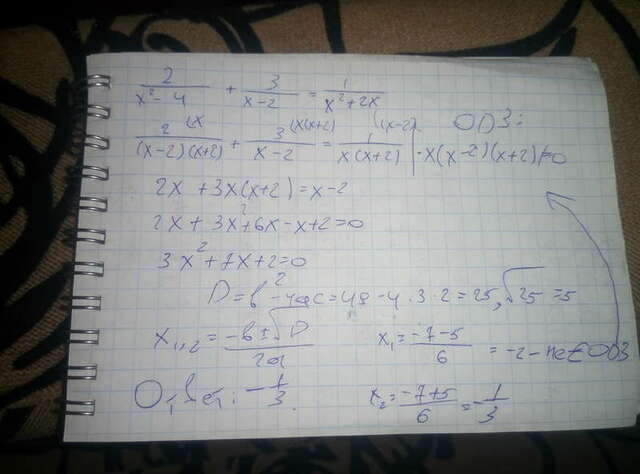 2/(x²-4) + 3/(x-2) = 1/(x²+2x)
2(x/((x-2)(x+2)) + 3(x(x+2)/(x-2) = 1((x-2)/(x(x+2)) | ·x(x-2)(x+2)≠0 ОДЗ:
2x + 3x(x+2) = x-2
2x + 3x²+6x-x+2=0
3x²+7x+2=0
D=b²-4ac=49-4·3·2=25, √25=5
x₁,₂ = (-b±√D)/2a x₁ = (-7-5)/6 = -2 - не ∈ ОДЗ
Ответ: -1/3. x₂ = (-7+5)/6 = -1/3